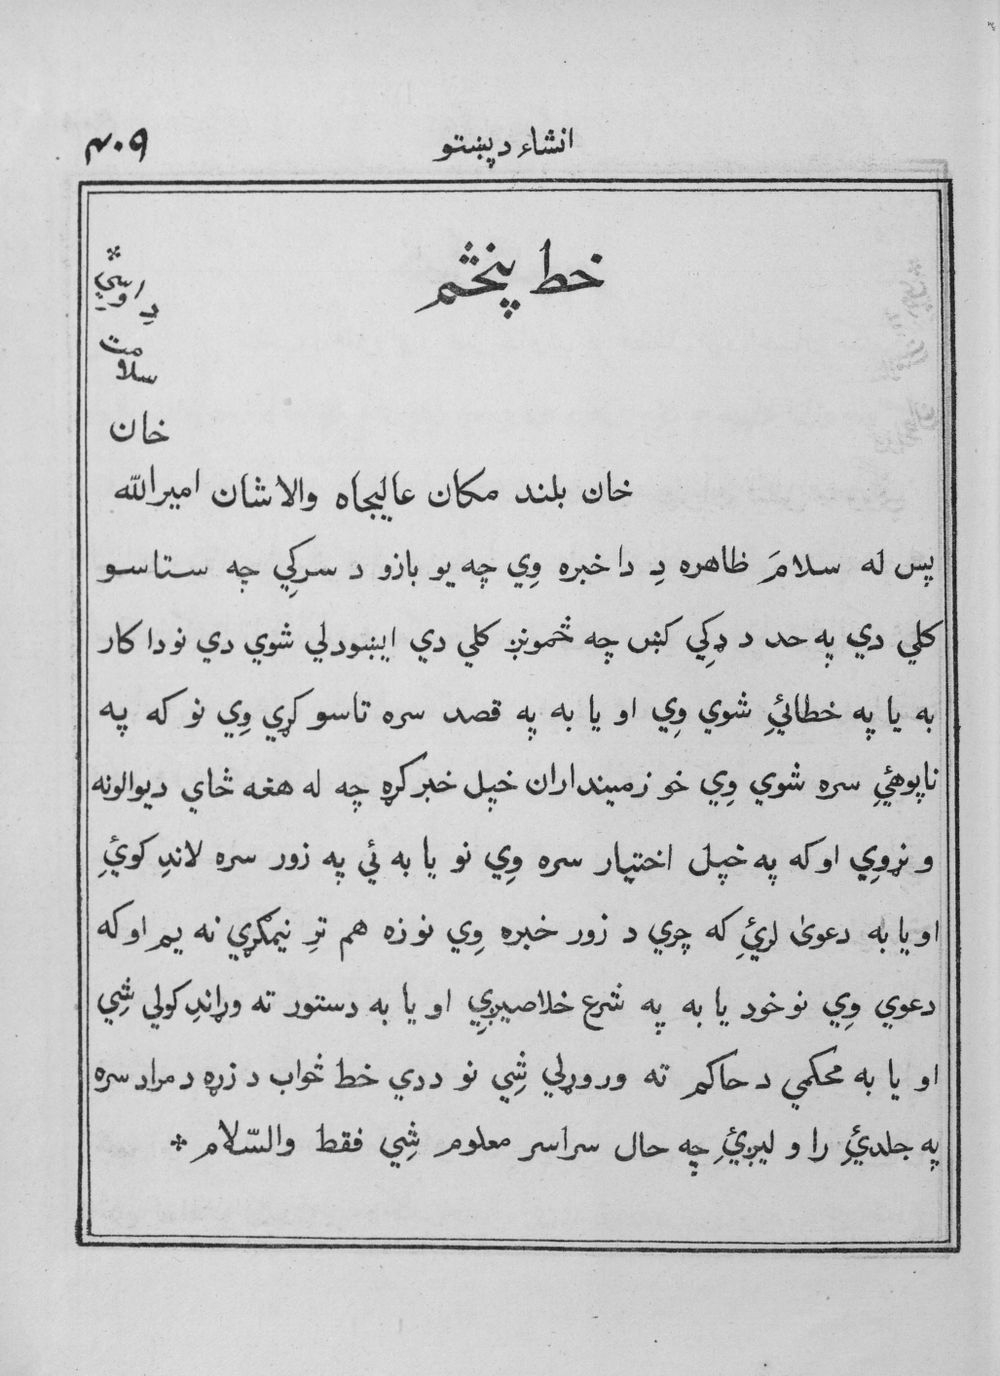 انشاء د پښتو
۴۰۹
خط پنځم
خان بلند مکان عالیجاه والاشان امیرالله
خان
سلامت
دِ اوسَي *
پس له سلامَ ظاهره دِ دا خبره وِي چه یو بازو د سرکِي چه ستاسو
کلي دي په حد د ډکِي کښ چه ځمونږ کلي دي ایښودلي شوي دي نو دا کار
به یا په خطائيِ شوي وِي او یا به په قصد سره تاسو کړي وِي نو که په
ناپوهئِ سره شوي وِي خو زمینداران خپل خبر کړه چه له هغه ځاي دیوالونه
و نړوِي او که په خپل اختیار سره وِي نو یا به ئي په زور سره لاندِ کوئِ
او یا به دعویٰ لرئِ که چري د زور خبره وِي نو زه هم ترِ نیمګړي نه یم او که
دعوي وِي نو خود یا به په شرع خلاصیږِي او یا به دستور ته وړاندِ کولي شِي
او یا به محکمي د حاکم ته وروړلي شِي نو د دي خط ځواب د زړه د مراد سره
په جلدئِ را و لیږئِ چه حال سراسر معلوم شِي فقط والسّلام *